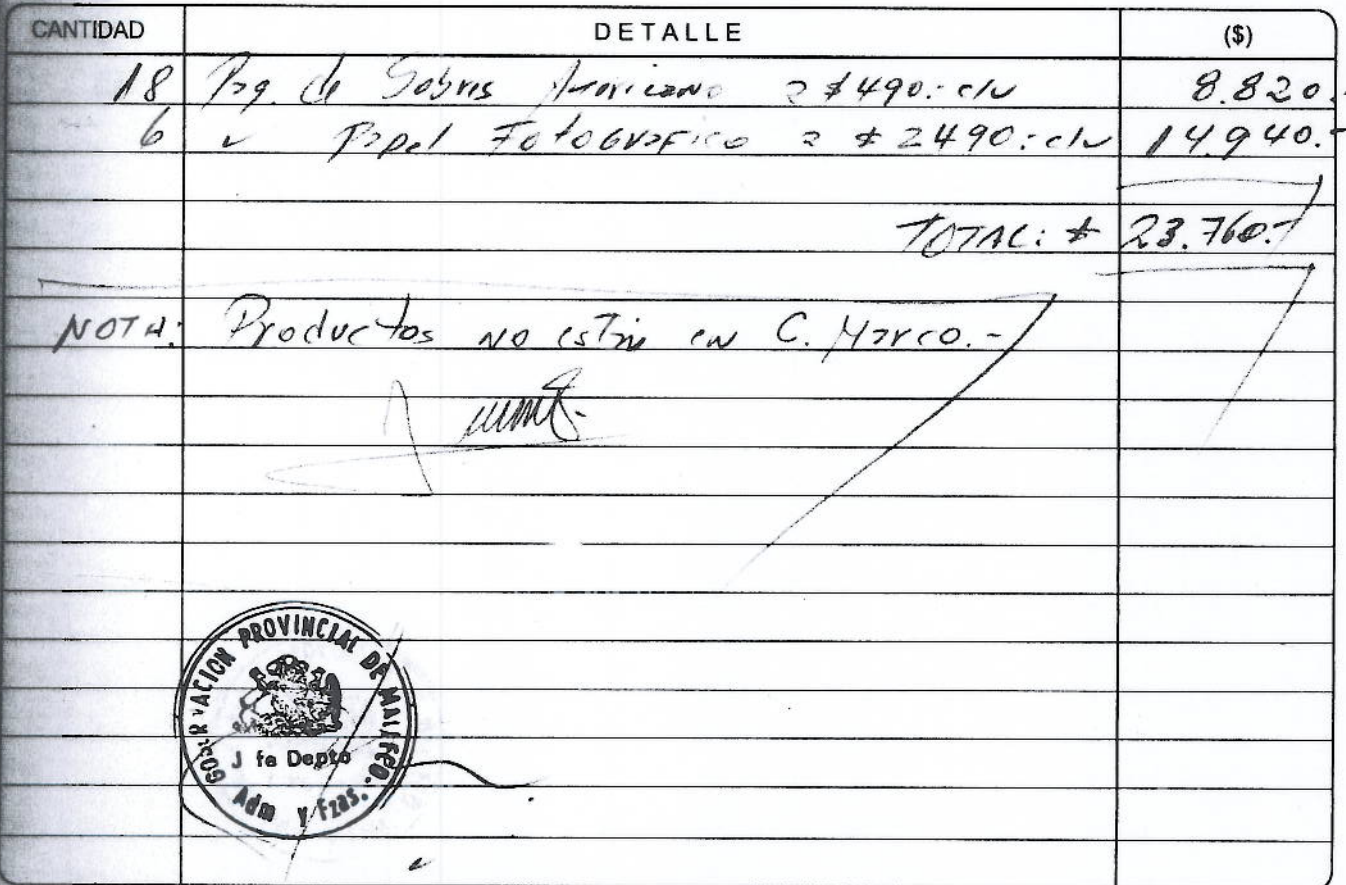 CANTIDAD DETALLE ($)
18 Pq. de Sobres Americano a $490.- c/u 8.820.-
6 " Papel Fotografico a $2490.- c/u 14.940.-
TOTAL: $ 23.760.-
NOTA: Productos no están en C. Marco.-
GOBERNACION PROVINCIAL DE MALLECO.
J fe Depto
Adm y Fzas.